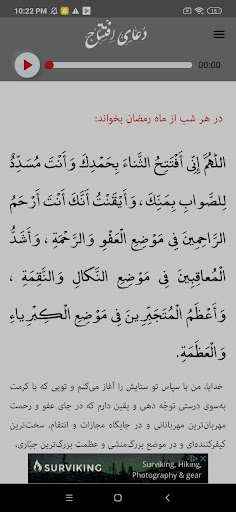 10:22 PM
دعای افتتاح
00:00
در هر شب از ماه رمضان بخواند:
اللَّهُمَّ إِنِّي أَفْتَتِحُ الثَّناءَ بِحَمْدِكَ وَأَنْتَ مُسَدِّدٌ
لِلصَّوابِ بِمَنِّكَ، وَأَيْقَنْتُ أَنَّكَ أَنْتَ أَرْحَمُ
الرَّاحِمِينَ فِي مَوْضِعِ الْعَفْوِ وَالرَّحْمَةِ، وَأَشَدُّ
الْمُعاقِبِينَ فِي مَوْضِعِ النَّكالِ وَالنَّقِمَةِ ،
وَأَعْظَمُ الْمُتَجَبِّرِينَ فِي مَوْضِعِ الْكِبْرِياءِ
وَالْعَظَمَةِ.
خدایا، من با سپاس تو ستایش را آغاز می‌کنم و تویی که با کرمت
به‌سوی درستی توجّه دهی و یقین دارم که در جای عفو و رحمت
مهربان‌ترین مهربانانی و در جایگاه مجازات و انتقام، سخت‌ترین
کیفرکننده‌ای و در موضع بزرگ‌منشی و عظمت بزرگ‌ترین جبّاری،
SURVIKING
Surviking, Hiking,
Photography & gear